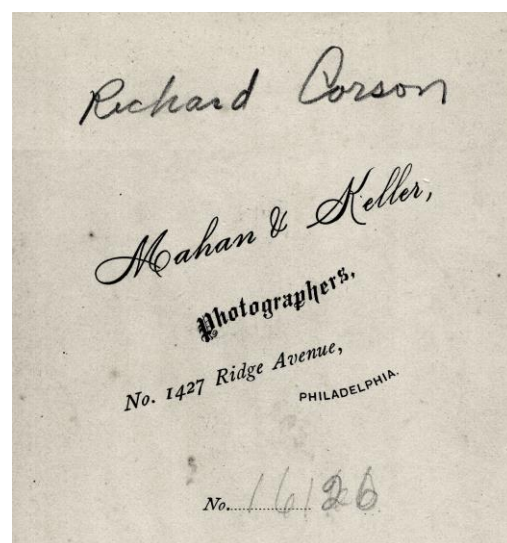 Richard Corson
Mahan & Keller,
Photographers,
No. 1427 Ridge Avenue,
PHILADELPHIA.
No. 16126